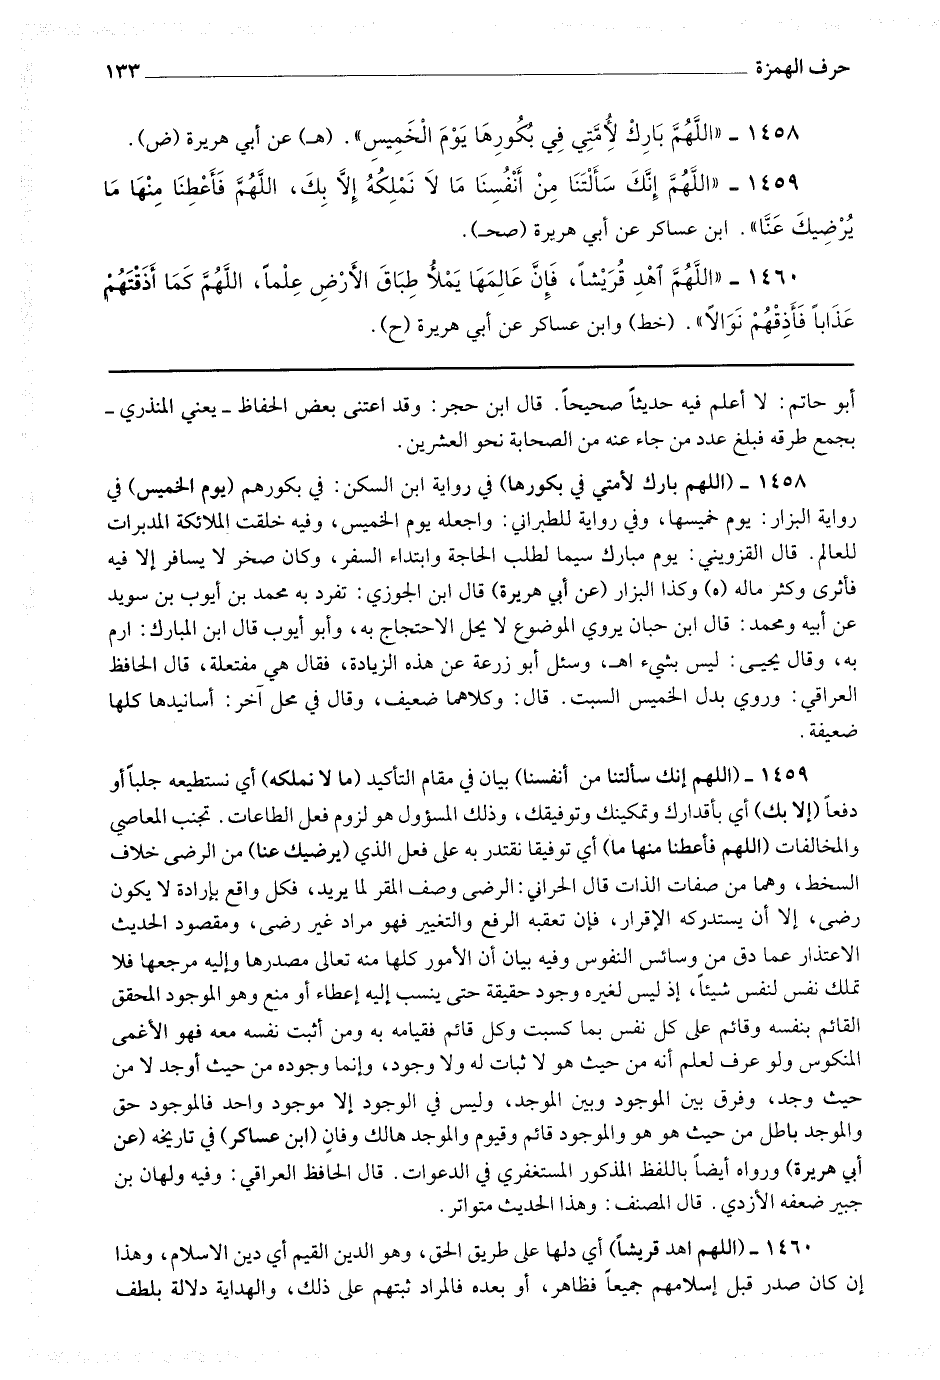 حرف الهمزة ١٣٣
١٤٥٨ ـ «اللَّهُمَّ بَارِكْ لأُمَّتِي فِي بُكُورِهَا يَوْمَ الْخَمِيسِ». (هـ) عن أبي هريرة (ض).
١٤٥٩ ـ «اللَّهُمَّ إِنَّكَ سَأَلْتَنَا مِنْ أَنْفُسِنَا مَا لَا نَمْلِكُهُ إِلَّا بِكَ، اللَّهُمَّ فَأَعْطِنَا مِنْهَا مَا
يُرْضِيكَ عَنَّا». ابن عساكر عن أبي هريرة (صحـ).
١٤٦٠ ـ «اللَّهُمَّ آهْدِ قُرَيْشاً، فَإِنَّ عَالِمَهَا يَمْلأُ طِبَاقَ الأَرْضِ عِلْماً، اللَّهُمَّ كَمَا أَذَقْتَهُمْ
عَذَاباً فَأَذِقْهُمْ نَوَالاً». (خط) وابن عساكر عن أبي هريرة (ح).
أبو حاتم: لا أعلم فيه حديثاً صحيحاً. قال ابن حجر: وقد اعتنى بعض الحفاظ ـ يعني المنذري ـ
بجمع طرقه فبلغ عدد من جاء عنه من الصحابة نحو العشرين.
١٤٥٨ ـ (اللهم بارك لأمتي في بكورها) في رواية ابن السكن: في بكورهم (يوم الخميس) في
رواية البزار: يوم خميسها، وفي رواية للطبراني: واجعله يوم الخميس، وفيه خلقت الملائكة المدبرات
للعالم. قال القزويني: يوم مبارك سيما لطلب الحاجة وابتداء السفر، وكان صخر لا يسافر إلا فيه
فأثرى وكثر ماله (ه) وكذا البزار (عن أبي هريرة) قال ابن الجوزي: تفرد به محمد بن أيوب بن سويد
عن أبيه ومحمد: قال ابن حبان يروي الموضوع لا يحل الاحتجاج به، وأبو أيوب قال ابن المبارك: ارم
به، وقال يحيى: ليس بشيء اهـ، وسئل أبو زرعة عن هذه الزيادة، فقال هي مفتعلة، قال الحافظ
العراقي: وروي بدل الخميس السبت. قال: وكلاهما ضعيف، وقال في محل آخر: أسانيدها كلها
ضعيفة.
١٤٥٩ ـ (اللهم إنك سألتنا من أنفسنا) بيان في مقام التأكيد (ما لا نملكه) أي نستطيعه جلباً أو
دفعاً (إلا بك) أي بأقدارك وتمكينك وتوفيقك، وذلك المسؤول هو لزوم فعل الطاعات. تجنب المعاصي
والمخالفات (اللهم فأعطنا منها ما) أي توفيقا نقتدر به على فعل الذي (يرضيك عنا) من الرضى خلاف
السخط، وهما من صفات الذات قال الحراني: الرضى وصف المقر لما يريد، فكل واقع بإرادة لا يكون
رضى، إلا أن يستدركه الإقرار، فإن تعقبه الرفع والتغيير فهو مراد غير رضى، ومقصود الحديث
الاعتذار عما دق من وسائس النفوس وفيه بيان أن الأمور كلها منه تعالى مصدرها وإليه مرجعها فلا
تملك نفس لنفس شيئاً، إذ ليس لغيره وجود حقيقة حتى ينسب إليه إعطاء أو منع وهو الموجود المحقق
القائم بنفسه وقائم على كل نفس بما كسبت وكل قائم فقيامه به ومن أثبت نفسه معه فهو الأغمى
المنكوس ولو عرف لعلم أنه من حيث هو لا ثبات له ولا وجود، وإنما وجوده من حيث أوجد لا من
حيث وجد، وفرق بين الموجود وبين الموجد، وليس في الوجود إلا موجود واحد فالموجود حق
والموجد باطل من حيث هو هو والموجود قائم وقيوم والموجد هالك وفانٍ (ابن عساكر) في تاريخه (عن
أبي هريرة) ورواه أيضاً باللفظ المذكور المستغفري في الدعوات. قال الحافظ العراقي: وفيه ولهان بن
جبير ضعفه الأزدي. قال المصنف: وهذا الحديث متواتر.
١٤٦٠ ـ (اللهم اهد قريشاً) أي دلها على طريق الحق، وهو الدين القيم أي دين الاسلام، وهذا
إن كان صدر قبل إسلامهم جميعاً فظاهر، أو بعده فالمراد ثبتهم على ذلك، والهداية دلالة بلطف